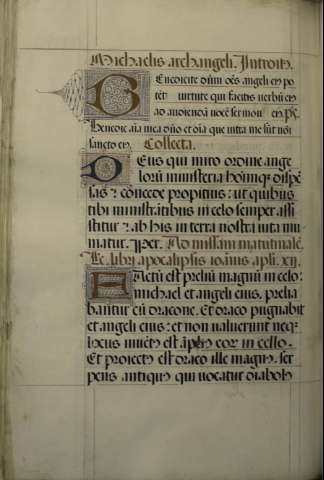 Michaelis archangeli. Introit9.
Benedicite dñm oẽs angeli eius po
tẽtes uirtute qui facitis uerbũ ei9
ad audiendã uocẽ sermonũ ei9. p̃s.
Benedic aĩa mea dño et oĩa que intra me sũt noĩ
sancto ei9. Collecta.
DEus qui miro ordine ange
lorũ ministeria hoĩmq3 dispẽ
sas ⁊ cõcede propitius: ut quibus
tibi ministrãtibus in celo semper assi
stitur ⁊ ab his in terra nostra uita mu
niatur. Per. Ad missam matutinalẽ.
Lc. libri apocalipsis ioãnis apli. xij.
FActũ est preliũ magnũ in celo:
michael et angeli eius. prelia
bãntur cũ dracone. Et draco pugnabit
et angeli eius: et non ualuerunt neq3
locus inuẽt9 est ãpli9 eor in cello.
Et proiect9 est draco ille magn9. ser
pens antiqu9 qui uocatur diabol9